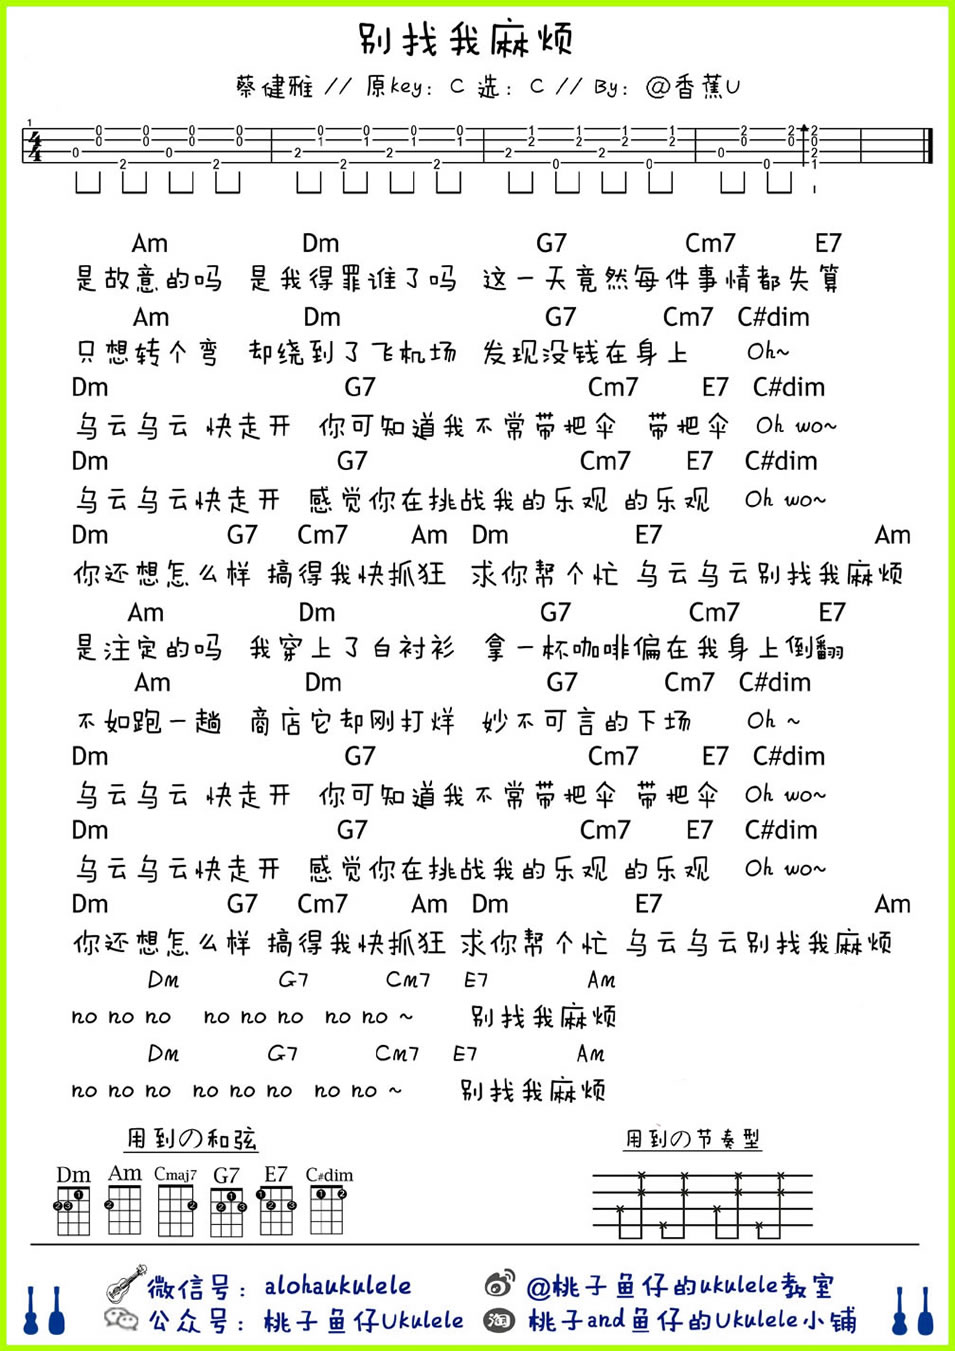 别找我麻烦
蔡健雅 // 原key：C 选：C // By：@香蕉U
1
4/4
0 0 0 0 0 1 0 1 1 2 1 2 2 2 2
0 0 0 0 1 0 1 0 2 1 2 1 0 0 0
0 2 0 2 2 2 2 2 2 0 2 0 0 0 2 1
Am Dm G7 Cm7 E7
是故意的吗 是我得罪谁了吗 这一天竟然每件事情都失算
Am Dm G7 Cm7 C#dim
只想转个弯 却绕到了飞机场 发现没钱在身上 Oh~
Dm G7 Cm7 E7 C#dim
乌云乌云 快走开 你可知道我不常带把伞 带把伞 Oh wo~
Dm G7 Cm7 E7 C#dim
乌云乌云快走开 感觉你在挑战我的乐观 的乐观 Oh wo~
Dm G7 Cm7 Am Dm E7 Am
你还想怎么样 搞得我快抓狂 求你帮个忙 乌云乌云别找我麻烦
Am Dm G7 Cm7 E7
是注定的吗 我穿上了白衬衫 拿一杯咖啡偏在我身上倒翻
Am Dm G7 Cm7 C#dim
不如跑一趟 商店它却刚打烊 妙不可言的下场 Oh ~
Dm G7 Cm7 E7 C#dim
乌云乌云 快走开 你可知道我不常带把伞 带把伞 Oh wo~
Dm G7 Cm7 E7 C#dim
乌云乌云快走开 感觉你在挑战我的乐观 的乐观 Oh wo~
Dm G7 Cm7 Am Dm E7 Am
你还想怎么样 搞得我快抓狂 求你帮个忙 乌云乌云别找我麻烦
Dm G7 Cm7 E7 Am
no no no no no no no no ~ 别找我麻烦
Dm G7 Cm7 E7 Am
no no no no no no no no ~ 别找我麻烦
用到の和弦 用到の节奏型
Dm Am Cmaj7 G7 E7 C#dim
微信号：alohaukulele @桃子鱼仔的ukulele教室
公众号：桃子鱼仔Ukulele 淘 桃子and鱼仔的Ukulele小铺